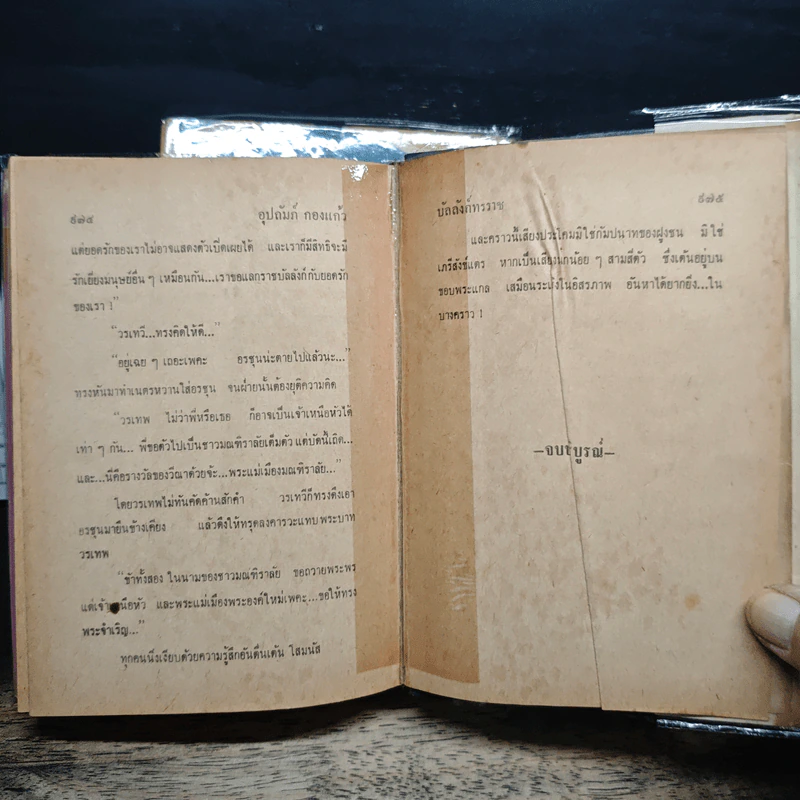 ๙๗๔ อุปถัมภ์ กองแก้ว
แต่ยอดรักของเราไม่อาจแสดงตัวเปิดเผยได้ และเราก็มีสิทธิจะมี
รักเยี่ยงมนุษย์อื่น ๆ เหมือนกัน...เราขอแลกราชบัลลังก์กับยอดรัก
ของเรา !”
“วรเทวี...ทรงคิดให้ดี...”
“อยู่เฉย ๆ เถอะเพคะ อรชุนน่ะตายไปแล้วนะ...”
ทรงหันมาทำเนตรหวานใส่อรชุน จนฝ่ายนั้นต้องยุติความคิด
“วรเทพ ไม่ว่าพี่หรือเธอ ก็อาจเป็นเจ้าเหนือหัวได้
เท่า ๆ กัน... พี่ขอตัวไปเป็นชาวมณฑิราลัยเต็มตัว แต่บัดนี้เถิด...
และ...นี่คือรางวัลของวีณาด้วยจ้ะ...พระแม่เมืองมณฑิราลัย...”
โดยวรเทพไม่ทันคัดค้านสักคำ วรเทวีก็ทรงดึงเอา
อรชุนมายืนข้างเคียง แล้วดึงให้ทรุดลงคารวะแทบพระบาท
วรเทพ
“ข้าทั้งสอง ในนามของชาวมณฑิราลัย ขอถวายพระพร
แด่เจ้าเหนือหัว และพระแม่เมืองพระองค์ใหม่เพคะ...ขอให้ทรง
พระจำเริญ...”
ทุกคนนิ่งเงียบด้วยความรู้สึกอันตื่นเต้น โสมนัส
บัลลังก์ทรราช ๙๗๕
และคราวนี้เสียงประโคมมิใช่กัมปนาทของฝูงชน มิใช่
เภรีสังข์แตร หากเป็นเสียงนกน้อย ๆ สามสี่ตัว ซึ่งเต้นอยู่บน
ขอบพระแกล เสมือนระเริงในอิสรภาพ อันหาได้ยากยิ่ง...ใน
บางคราว !
—จบบริบูรณ์—